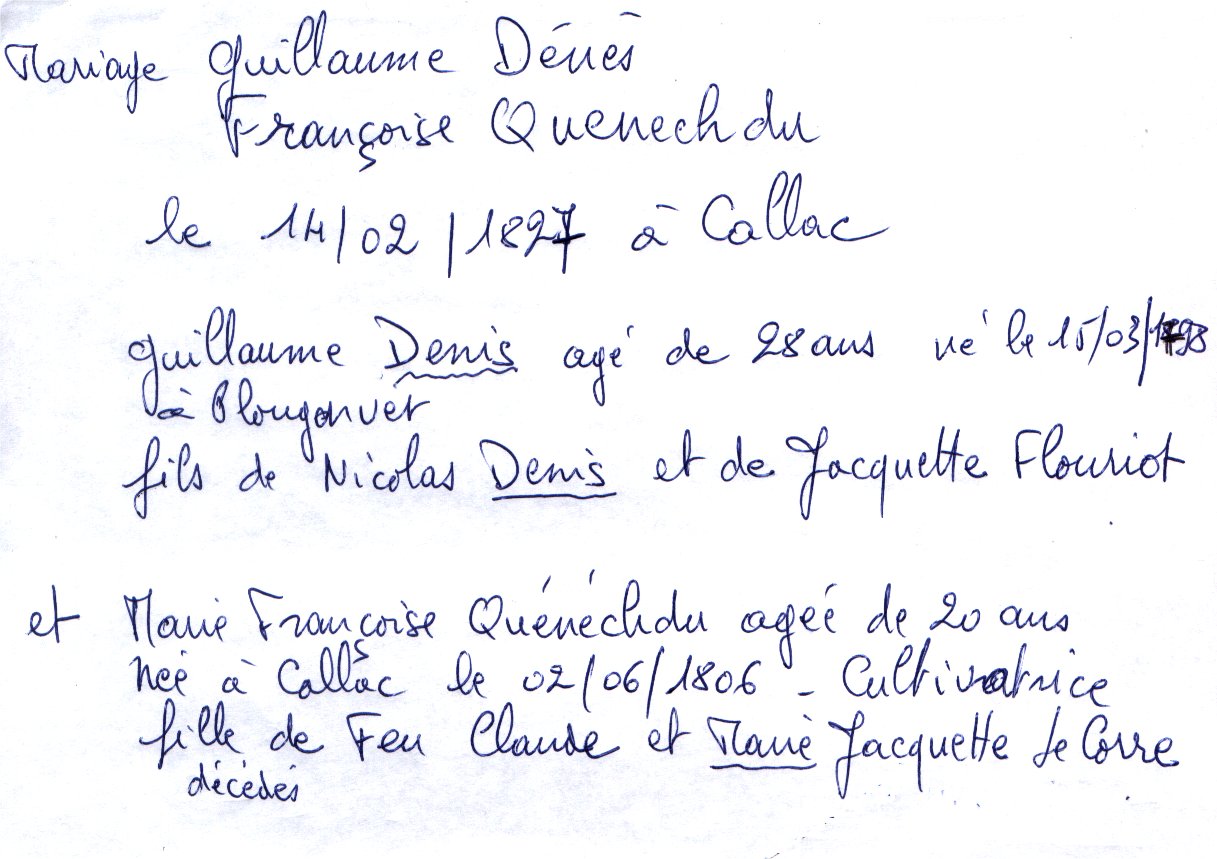 Mariage Guillaume Dénès
Françoise Quenechdu
le 14/02/1827 à Callac
Guillaume Denis agé de 28 ans né le 15/03/1798
à Plougonver
fils de Nicolas Denis et de Jacquette Flouriot
et Marie Françoise Quénéchdu ageé de 20 ans
Née à Callac le 02/06/1806 - Cultivatrice
fille de Feu Claude et Marie Jacquette Le Corre
décédés